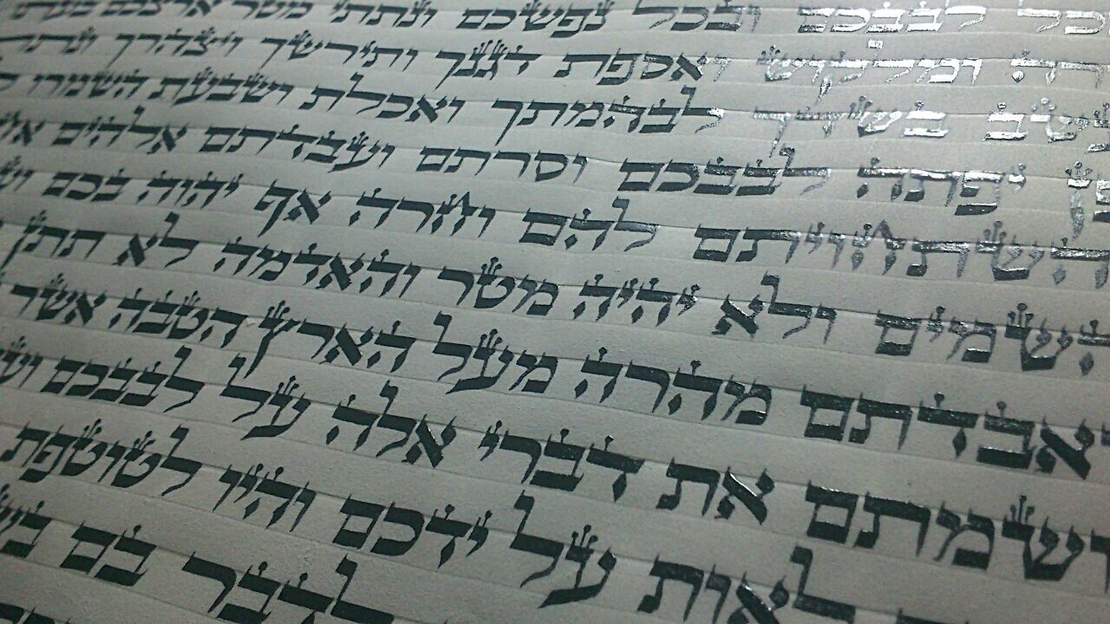 בכל לבבכם ובכל נפשכם ונתתי מטר ארצכם בעתו
ומלקוש ואספת דגנך ותירשך ויצהרך ונתתי
בשדך לבהמתך ואכלת ושבעת השמרו
פן יפתה לבבכם וסרתם ועבדתם אלהים
והשתחויתם להם וחרה אף יהוה בכם
השמים ולא יהיה מטר והאדמה לא תתן
ואבדתם מהרה מעל הארץ הטבה אשר
ושמתם את דברי אלה על לבבכם
לאות על ידכם והיו לטוטפת
לדבר בם